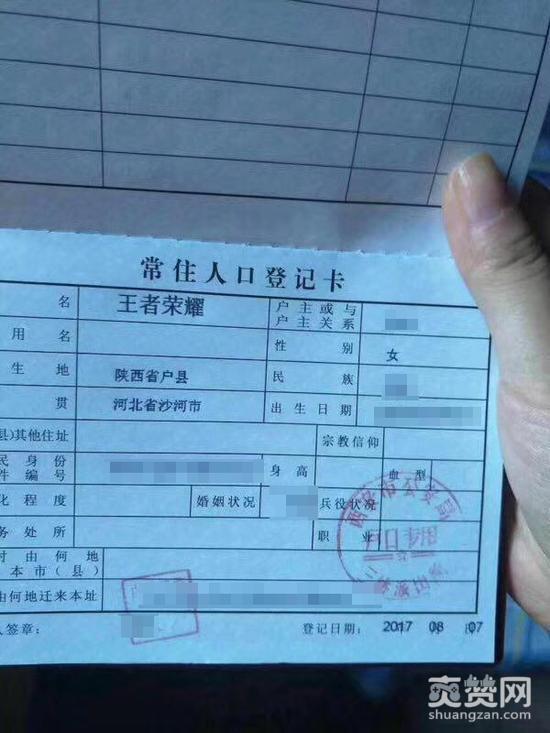 常住人口登记卡
名 王者荣耀 户主或与户主关系
用名 性别 女
生地 陕西省户县 民族
贯 河北省沙河市 出生日期
县)其他住址 宗教信仰
民身份件编号 身高 血型
化程度 婚姻状况 兵役状况
务处所 职业
时由何地
本市(县)
由何地迁来本址
人签章: 登记日期: 2017 08 07
西安市公安局
户口专用
爽赞网
shuangzan.com